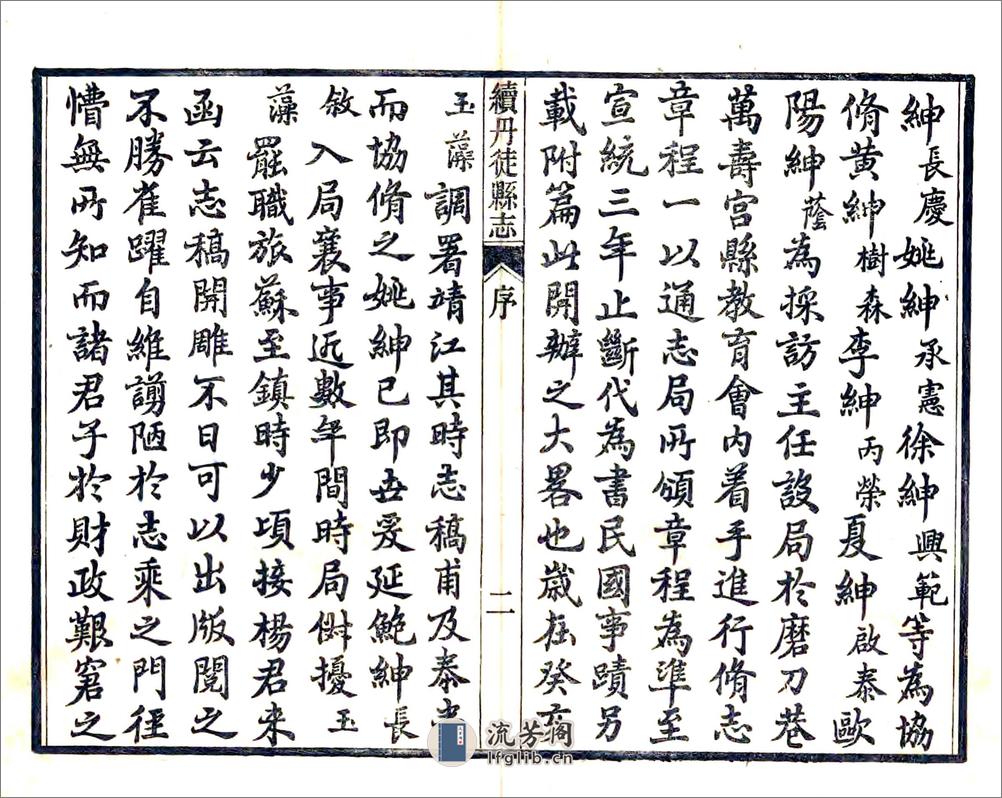 紳長慶姚紳承憲徐紳興範等為協
脩黃紳樹森李紳丙榮夏紳啟泰歐
陽紳蔭為採訪主任設局於磨刀巷
萬壽宮縣教育會內着手進行脩志
章程一以通志局所頒章程為準至
宣統三年止斷代為書民國事蹟另
載附篇此開辦之大畧也歲在癸亥
續丹徒縣志 序 二
玉藻調署靖江其時志稿甫及泰半
而協脩之姚紳已即世爰延鮑紳長
敘入局襄事近數年間時局俶擾玉
藻罷職旅蘇至鎮時少頃接楊君來
函云志稿開雕不日可以出版閱之
不勝雀躍自維謭陋於志乘之門徑
懵無所知而諸君子於財政艱窘之
流芳阁
lfglib.cn